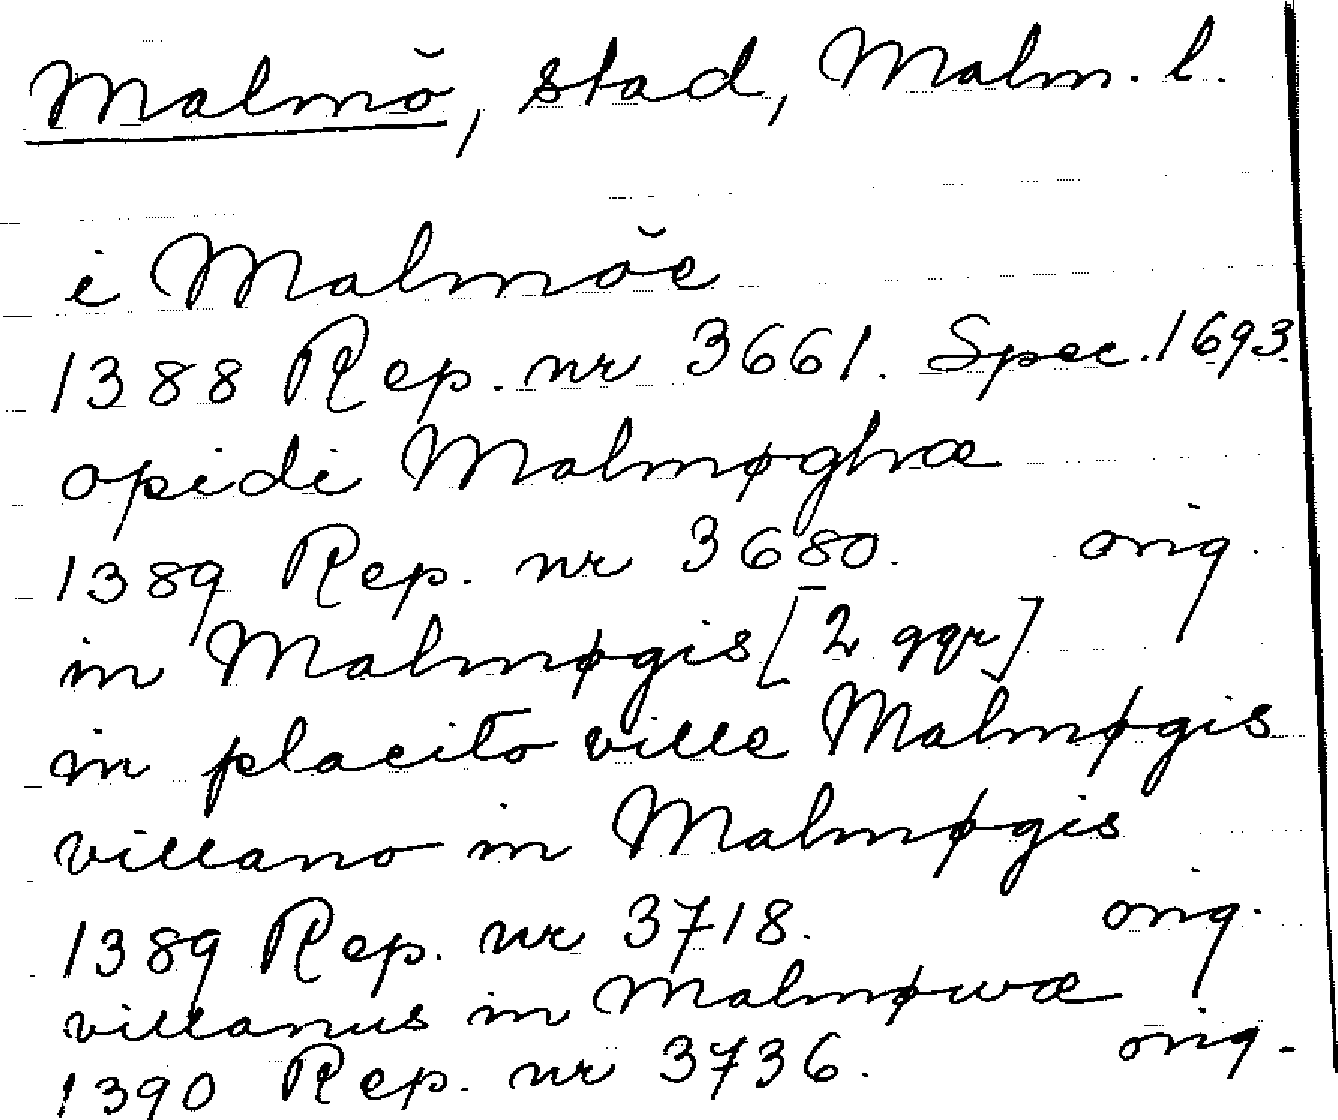 Malmö, stad, Malm. l.
i Malmöe
1388 Rep. nr 3661. Spec. 1693.
opidi Malmøghæ
1389 Rep. nr 3680. orig.
in Malmøgis [2 ggr]
in placito ville Malmøgis
villano in Malmøgis
1389 Rep. nr 3718. orig.
villanus in Malmøwæ
1390 Rep. nr 3736. orig.